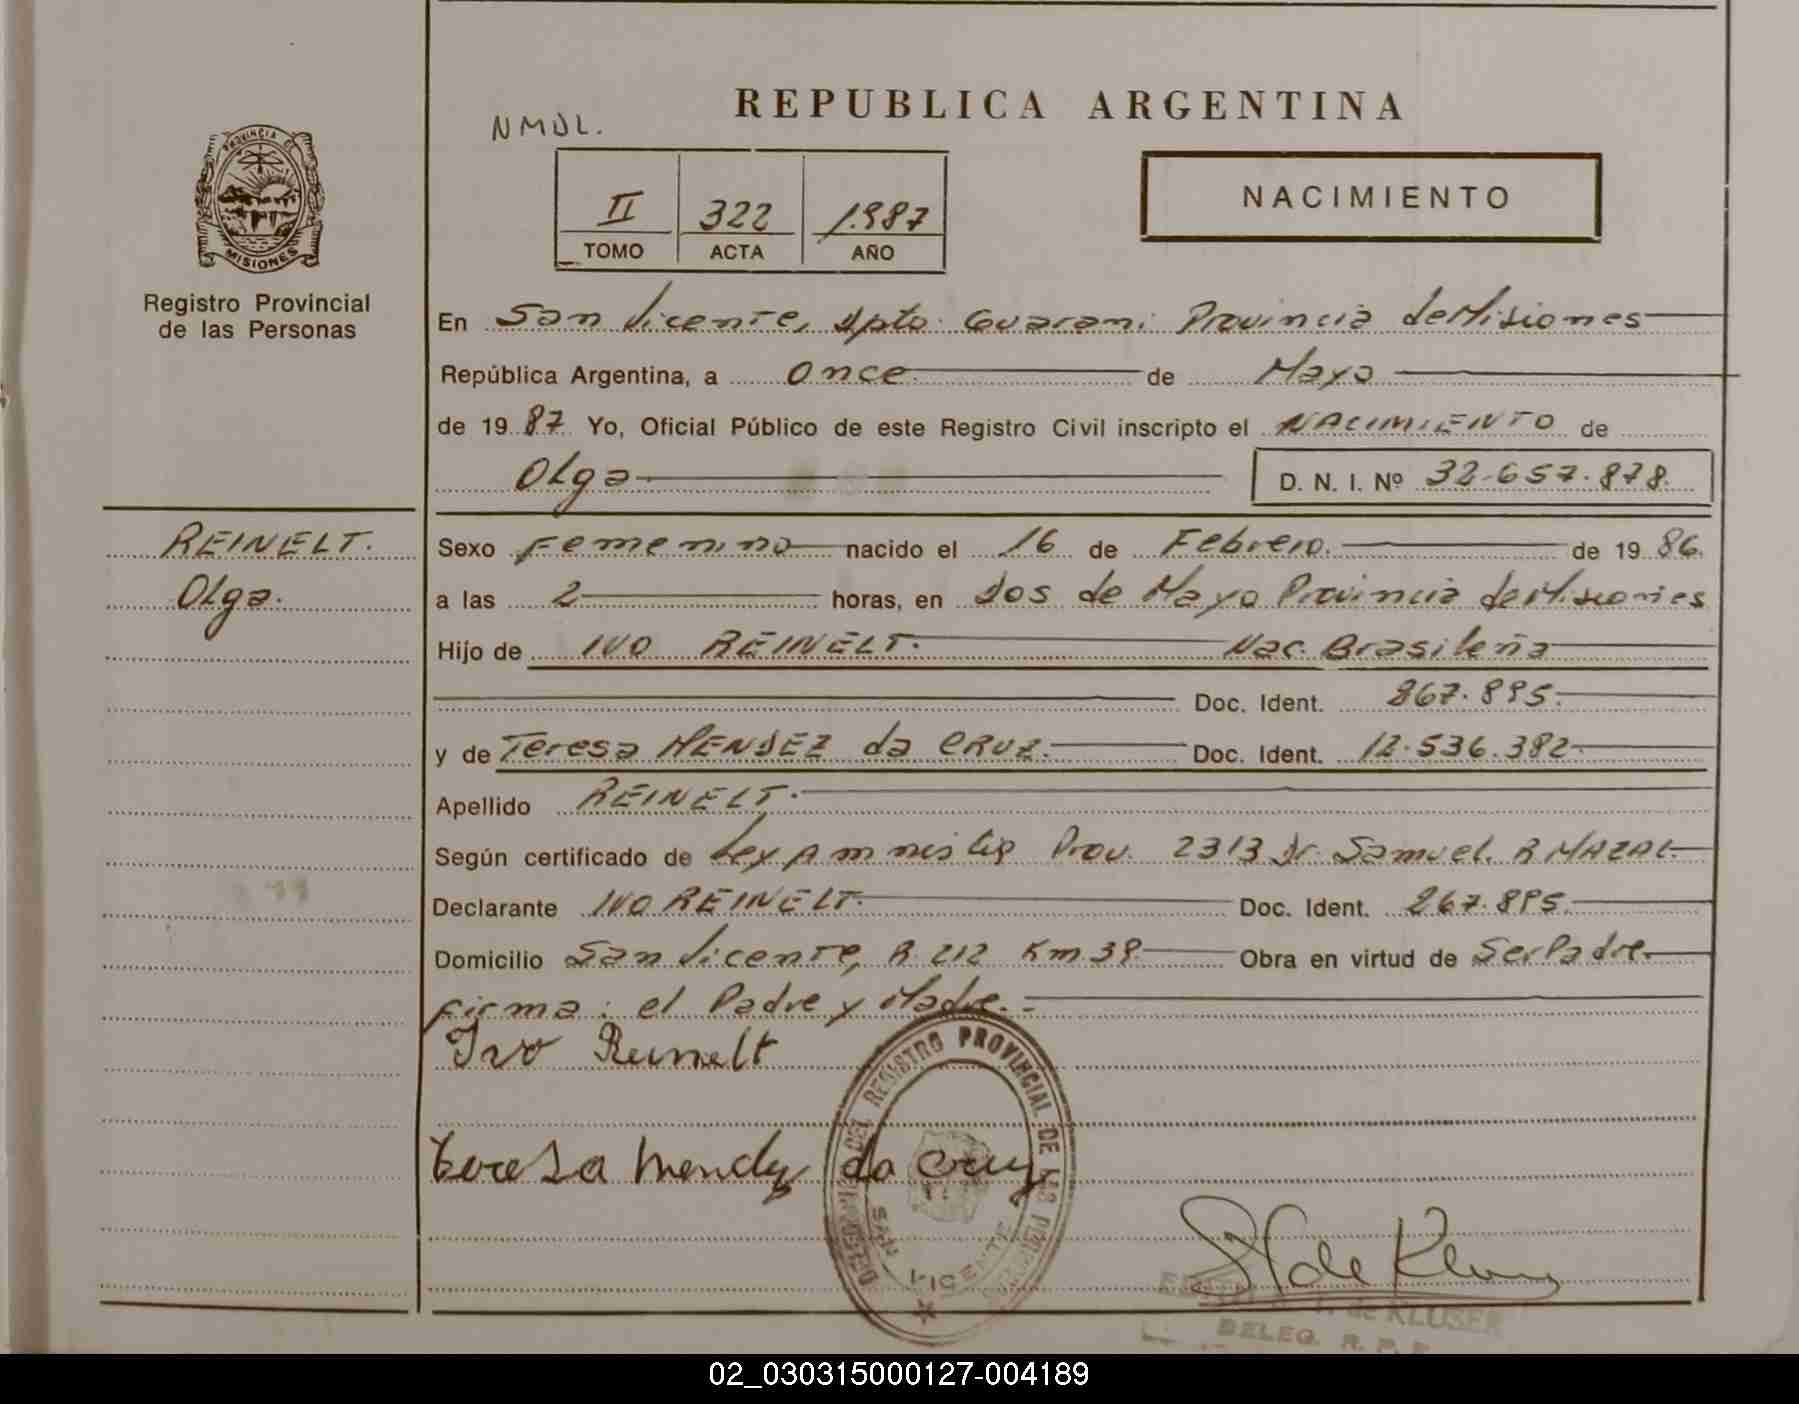 REPUBLICA ARGENTINA
PROVINCIA
MISIONES
Registro Provincial
de las Personas
II 322 1.987
TOMO ACTA AÑO
NACIMIENTO
En San Vicente, Dpto. Guarani Provincia de Misiones
República Argentina, a Once de Mayo
de 19 87 Yo, Oficial Público de este Registro Civil inscripto el NACIMIENTO de
Olga D. N. I. Nº 32.657.878.
REINELT.
Olga.
Sexo Femenino nacido el 16 de Febrero. de 19 86.
a las 2 horas, en Dos de Mayo Provincia de Misiones
Hijo de IVO REINELT. Nac. Brasileña
Doc. Ident. 267.895.
y de Teresa MENDEZ da CRUZ. Doc. Ident. 12.536.382.
Apellido REINELT.
Según certificado de Ley Prov. 2313 Dr. Samuel. R MAZAL
Declarante IVO REINELT. Doc. Ident. 267.895.
Domicilio San Vicente, R. 212 Km 39. Obra en virtud de Ser Padre.
firma: el Padre y Madre.
Ivo Reinelt
Teresa Mendez da Cruz
DEL REGISTRO PROVINCIAL DE LAS
SAN VICENTE
de KLUSER
DELEG. R. P.
02_030315000127-004189